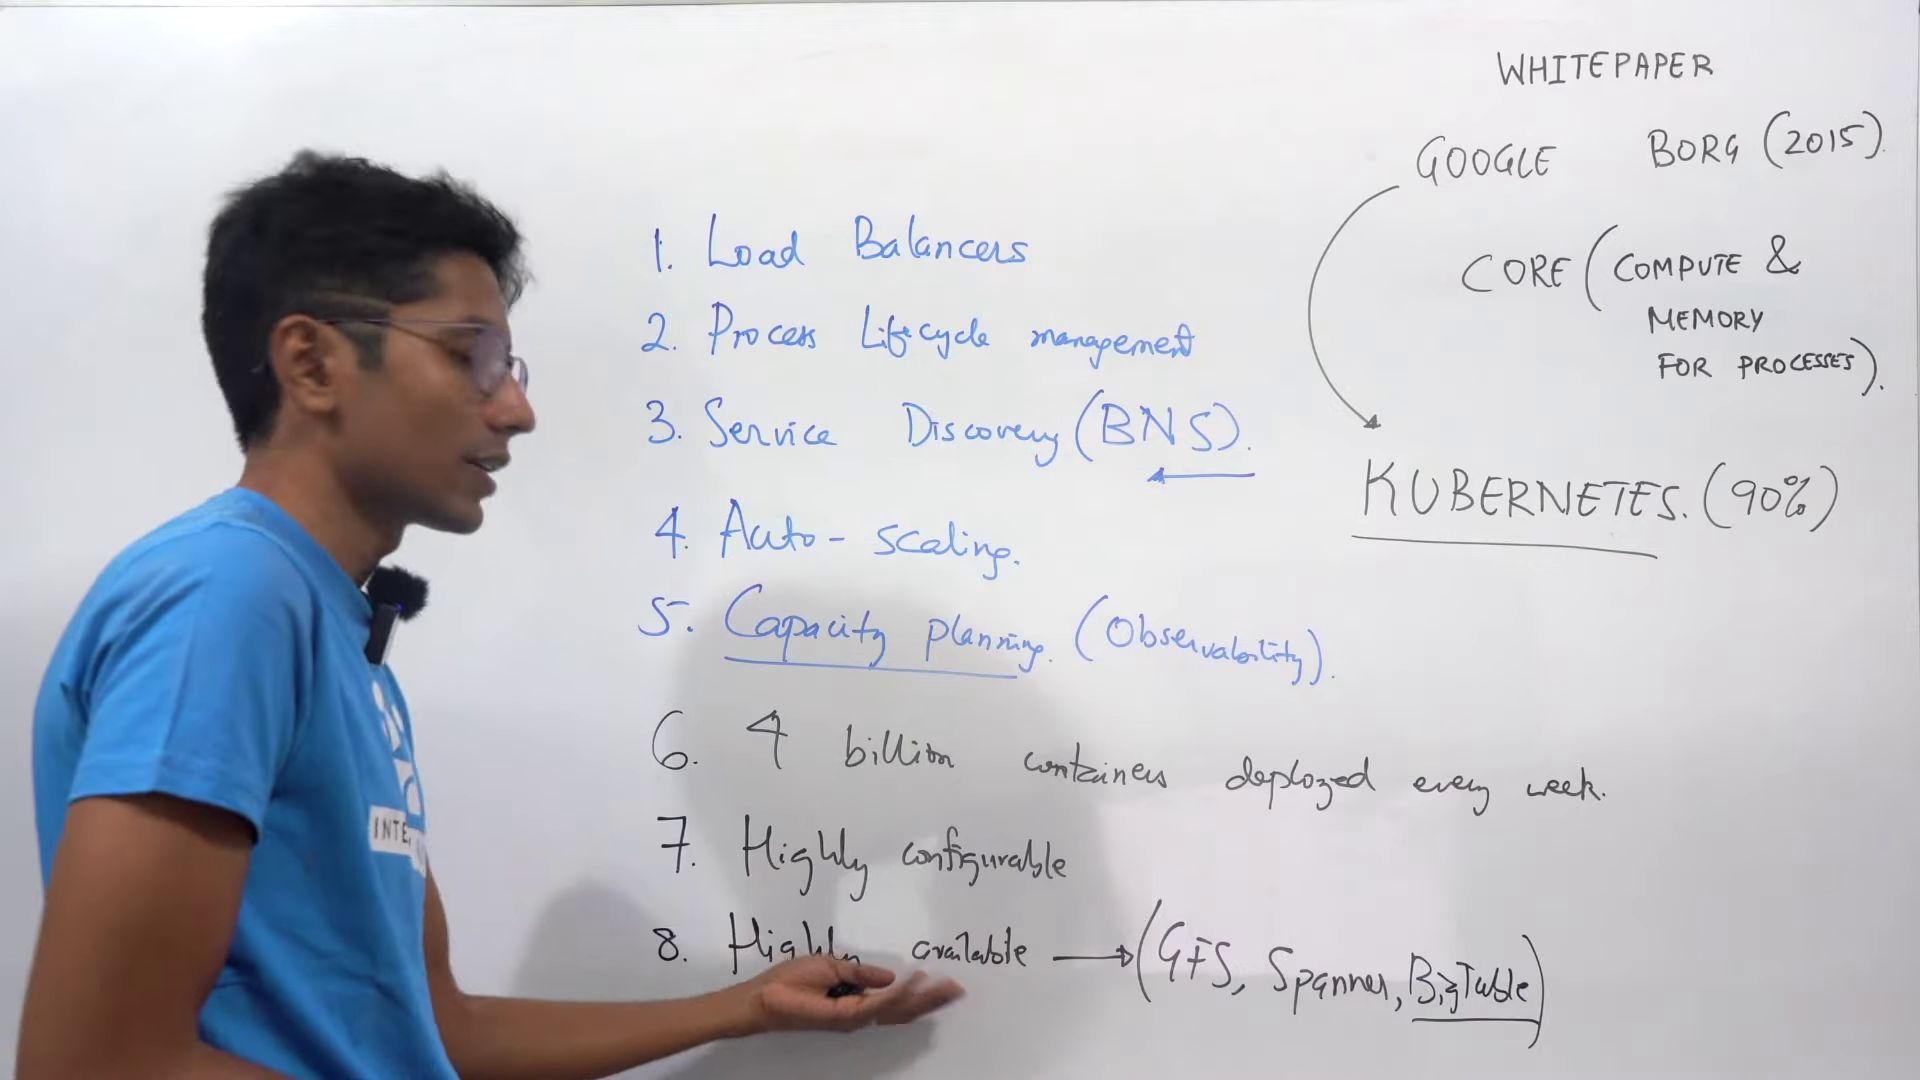 WHITEPAPER
GOOGLE BORG (2015).
CORE (COMPUTE &
MEMORY
FOR PROCESSES).
KUBERNETES. (90%)
1. Load Balancers
2. Process Lifecycle management
3. Service Discovery (BNS).
4. Auto-scaling.
5. Capacity planning. (Observability).
6. 4 billion containers deployed every week.
7. Highly configurable
8. Highly available → (GFS, Spanner, BigTable)
INTE